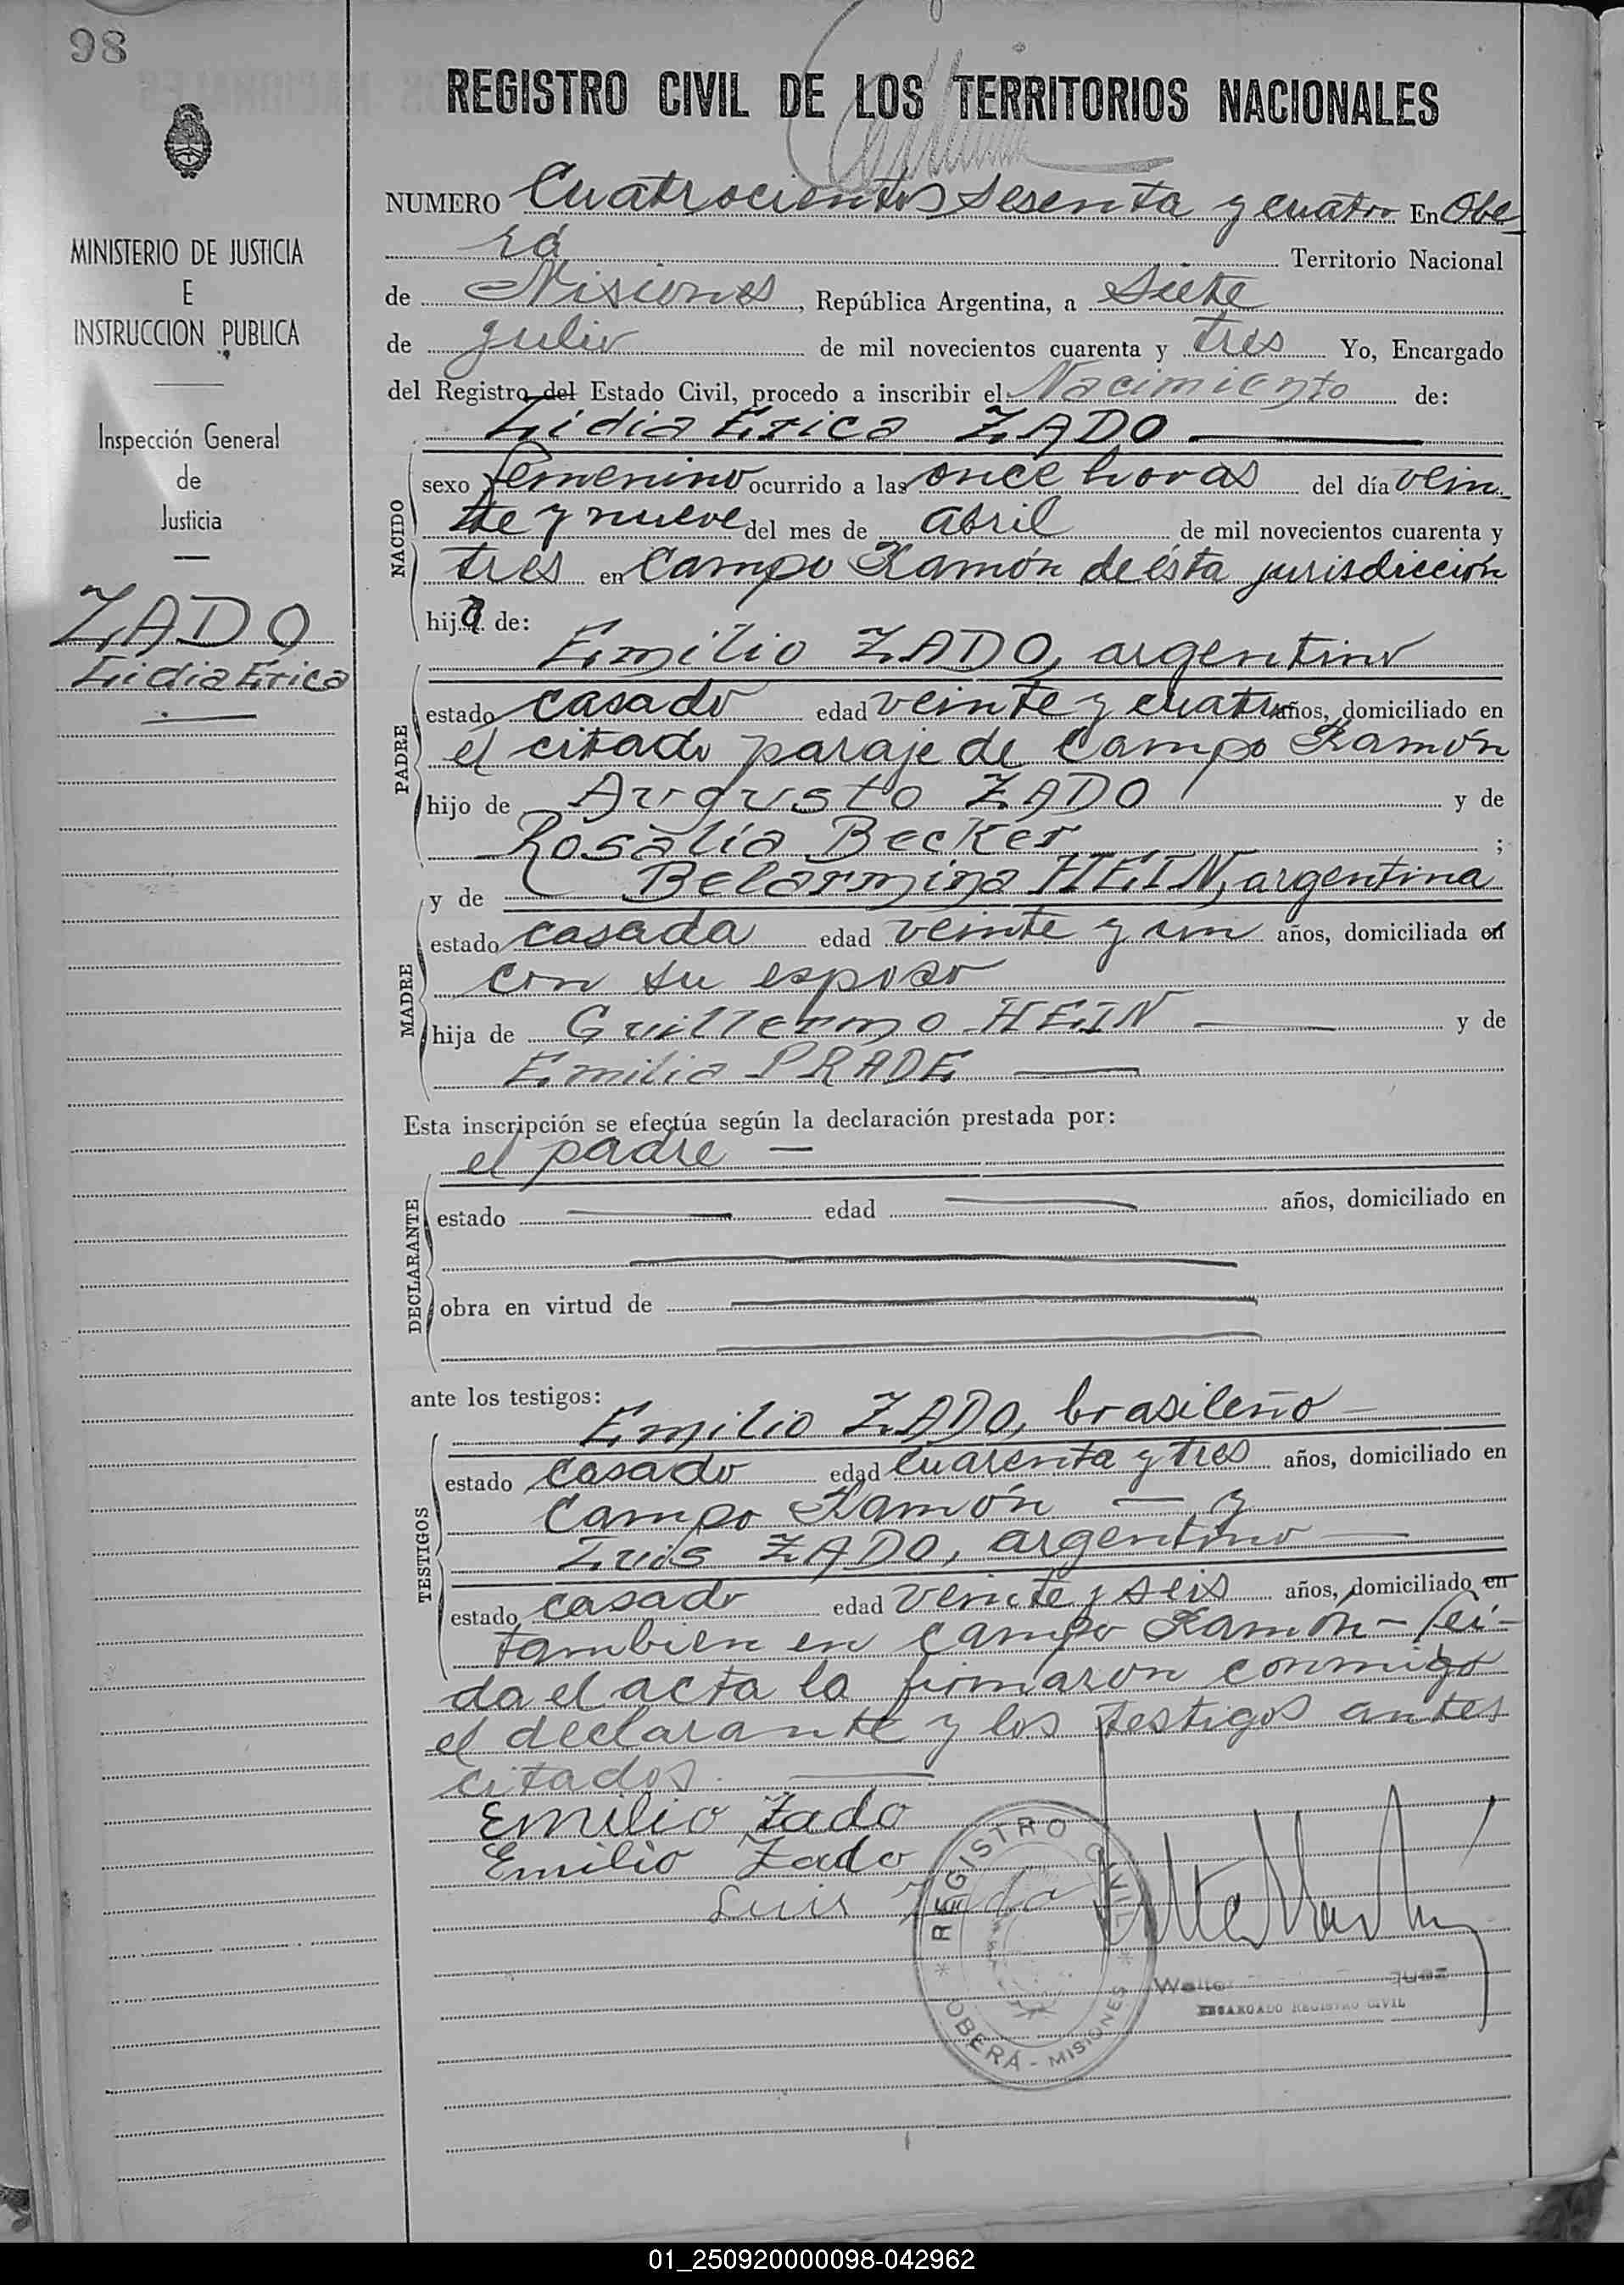 98
REGISTRO CIVIL DE LOS TERRITORIOS NACIONALES
MINISTERIO DE JUSTICIA
E
INSTRUCCION PUBLICA
Inspección General
de
Justicia
ZADO
Lidia Erica
NUMERO Cuatrocientos sesenta y cuatro En Obe
rá Territorio Nacional
de Misiones, República Argentina, a Siete
de julio de mil novecientos cuarenta y tres Yo, Encargado
del Registro del Estado Civil, procedo a inscribir el Nacimiento de:
Lidia Erica ZADO
NACIDO
sexo femenino ocurrido a las once horas del día vein
te y nueve del mes de abril de mil novecientos cuarenta y
tres en Campo Ramón de ésta jurisdicción
hija de:
Emilio ZADO, argentino
PADRE
estado casado edad veinte y cuatro años, domiciliado en
el citado paraje de Campo Ramón
hijo de Augusto ZADO y de
Rosalia Becker ;
y de Belarmina HEIN, argentina
MADRE
estado casada edad veinte y un años, domiciliada en
con su esposo
hija de Guillermo HEIN y de
Emilia PRADE
Esta inscripción se efectúa según la declaración prestada por:
el padre —
DECLARANTE
estado edad años, domiciliado en
obra en virtud de
ante los testigos:
Emilio ZADO, brasileño —
TESTIGOS
estado casado edad cuarenta y tres años, domiciliado en
Campo Ramón — y
Luis ZADO, argentino —
estado casado edad veinte y seis años, domiciliado en
tambien en campo Ramón - leí-
da el acta la firmaron conmigo
el declarante y los testigos antes
citados.
Emilio Zado
Emilio Zado
Luis Zado
REGISTRO CIVIL
OBERÁ - MISIONES
ENCARGADO REGISTRO CIVIL
01_250920000098-042962